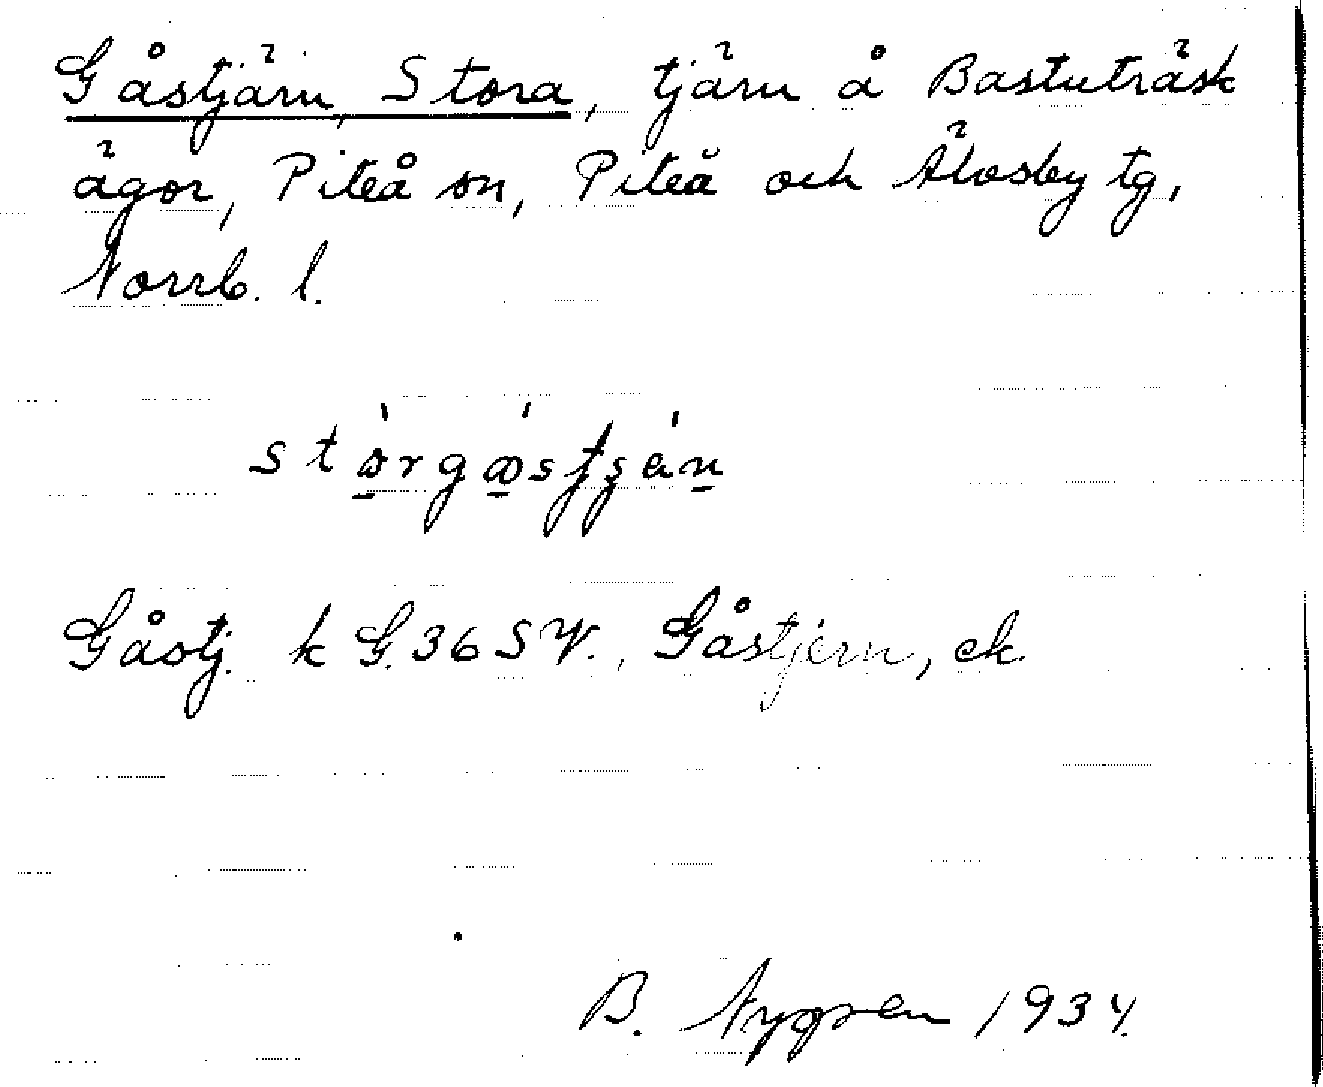 Gåstjärn, Stora, tjärn å Bastuträsk
ägor, Piteå sn, Piteå och Älvsby tg,
Norrb. l.
Gåstj. k G. 36 SV., Gåstjern, ek.
B. Nygren 1934.